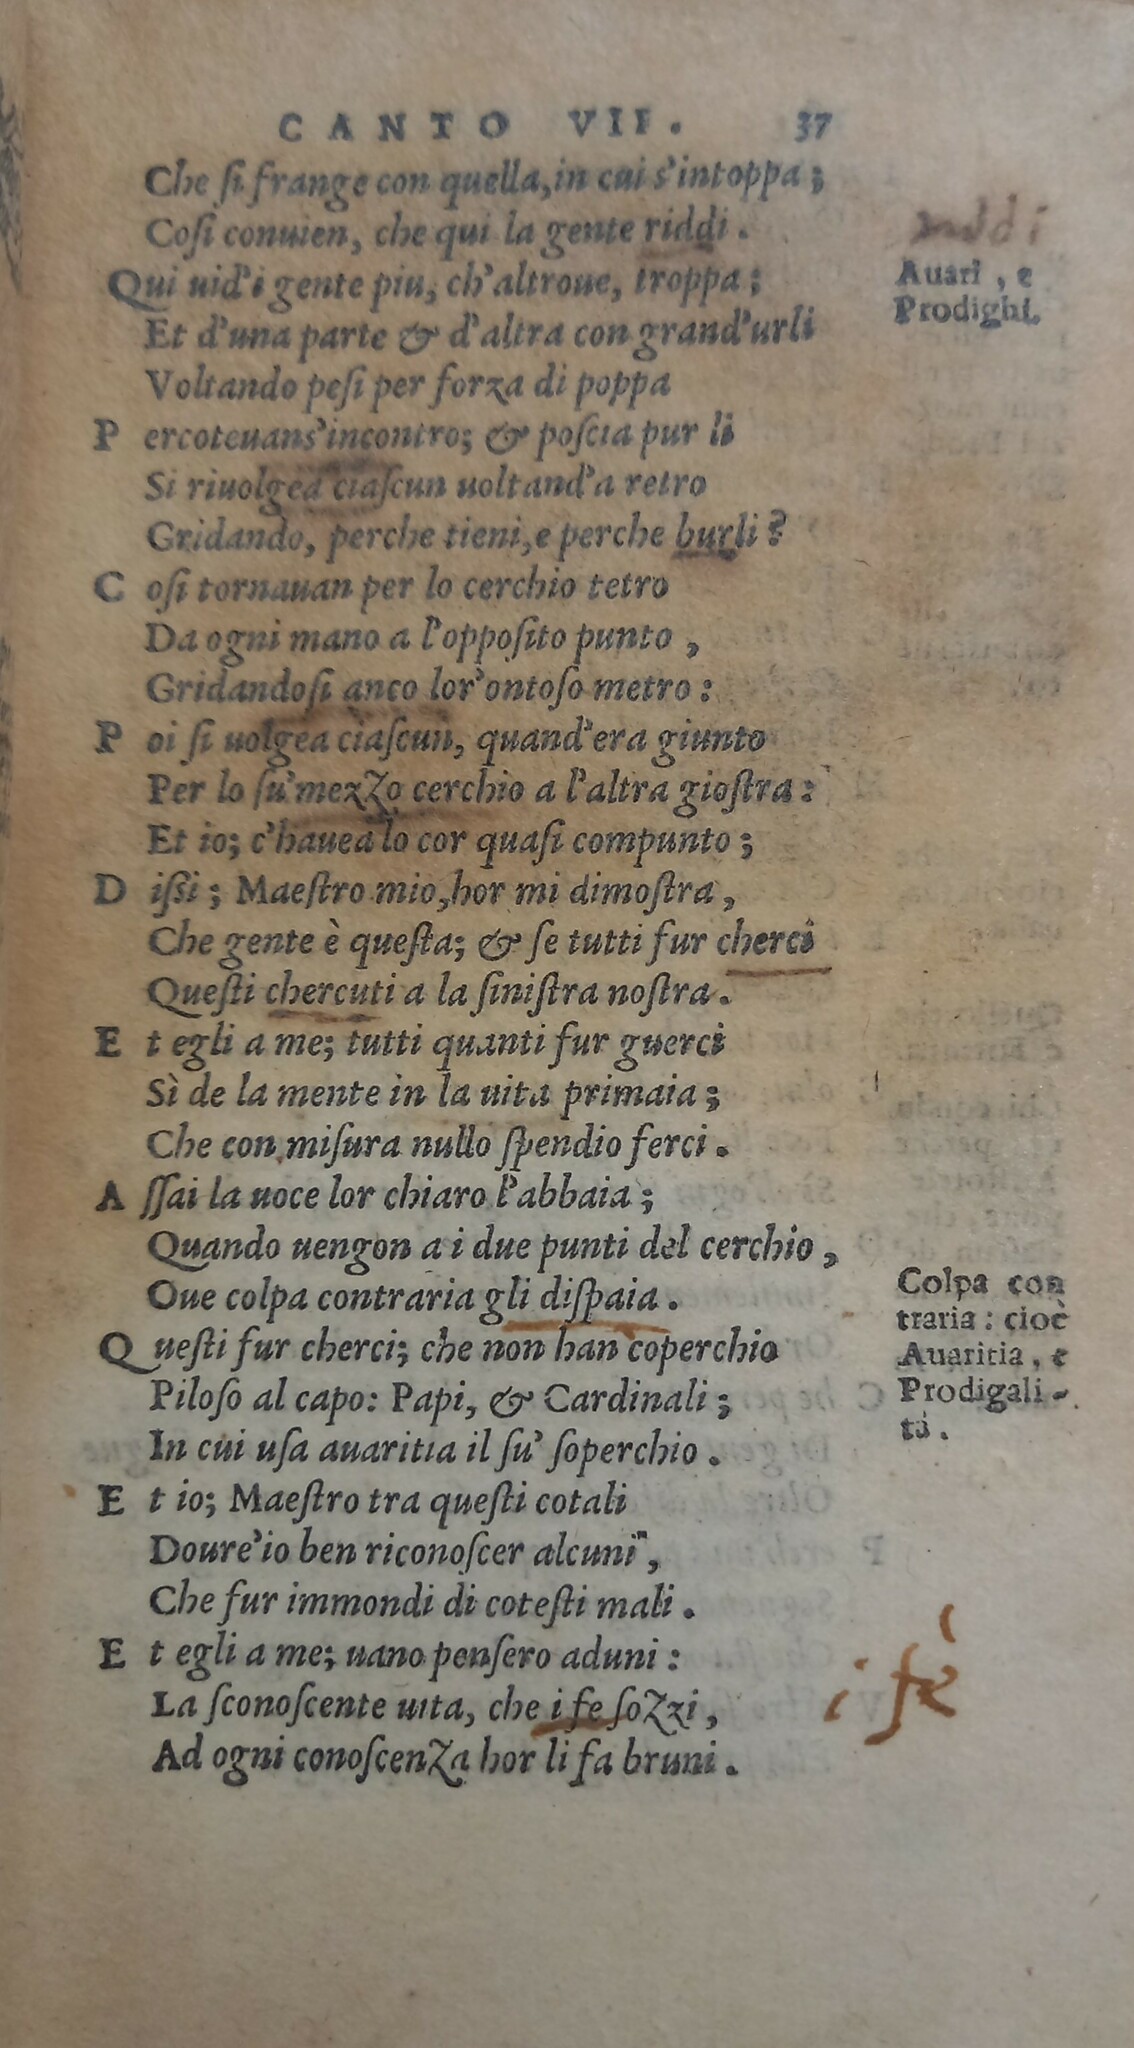 CANTO VII. 37
Che ſi frange con quella, in cui s'intoppa;
Coſi conuien, che qui la gente riddi.
Qui uid'i gente piu, ch'altroue, troppa;
Et d'una parte & d'altra con grand'urli
Voltando peſi per forza di poppa
P ercoteuans'incontro; & poſcia pur li
Si riuolgea ciaſcun uoltand'a retro
Gridando, perche tieni, e perche burli?
C oſi tornauan per lo cerchio tetro
Da ogni mano a l'oppoſito punto,
Gridandoſi anco lor'ontoſo metro:
P oi ſi uolgea ciaſcun, quand'era giunto
Per lo ſu'mezzo cerchio a l'altra gioſtra:
Et io; c'hauea lo cor quaſi compunto;
D iſſi; Maeſtro mio, hor mi dimoſtra,
Che gente è queſta; & ſe tutti fur cherci
Queſti chercuti a la ſiniſtra noſtra.
E t egli a me; tutti quanti fur guerci
Sì de la mente in la uita primaia;
Che con miſura nullo ſpendio ferci.
A ſſai la uoce lor chiaro l'abbaia;
Quando uengon a i due punti del cerchio,
Oue colpa contraria gli diſpaia.
Q ueſti fur cherci; che non han coperchio
Piloſo al capo: Papi, & Cardinali;
In cui uſa auaritia il ſu' ſoperchio.
E t io; Maeſtro tra queſti cotali
Doure'io ben riconoſcer alcuni,
Che fur immondi di coteſti mali.
E t egli a me; uano penſero aduni:
La ſconoſcente uita, che i fe ſozzi,
Ad ogni conoſcenza hor li fa bruni.
Auari, e
Prodighi.
Colpa con
traria: cioè
Auaritia, e
Prodigali-
tà.
i fe